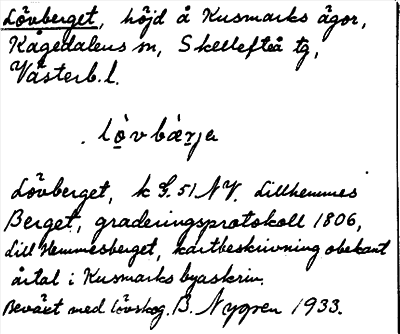 Lövberget, höjd å Kusmarks ägor,
Kågedalens sn, Skellefteå tg,
Västerb. l.
lövbärje
Lövberget, k G. 51 NV. Lillhemmes
Berget, graderingsprotokoll 1806,
Lill Hemmesberget, kartbeskrivning obekant
årtal i Kusmarks byaskrin.
Beväxt med lövskog. B. Nygren 1933.